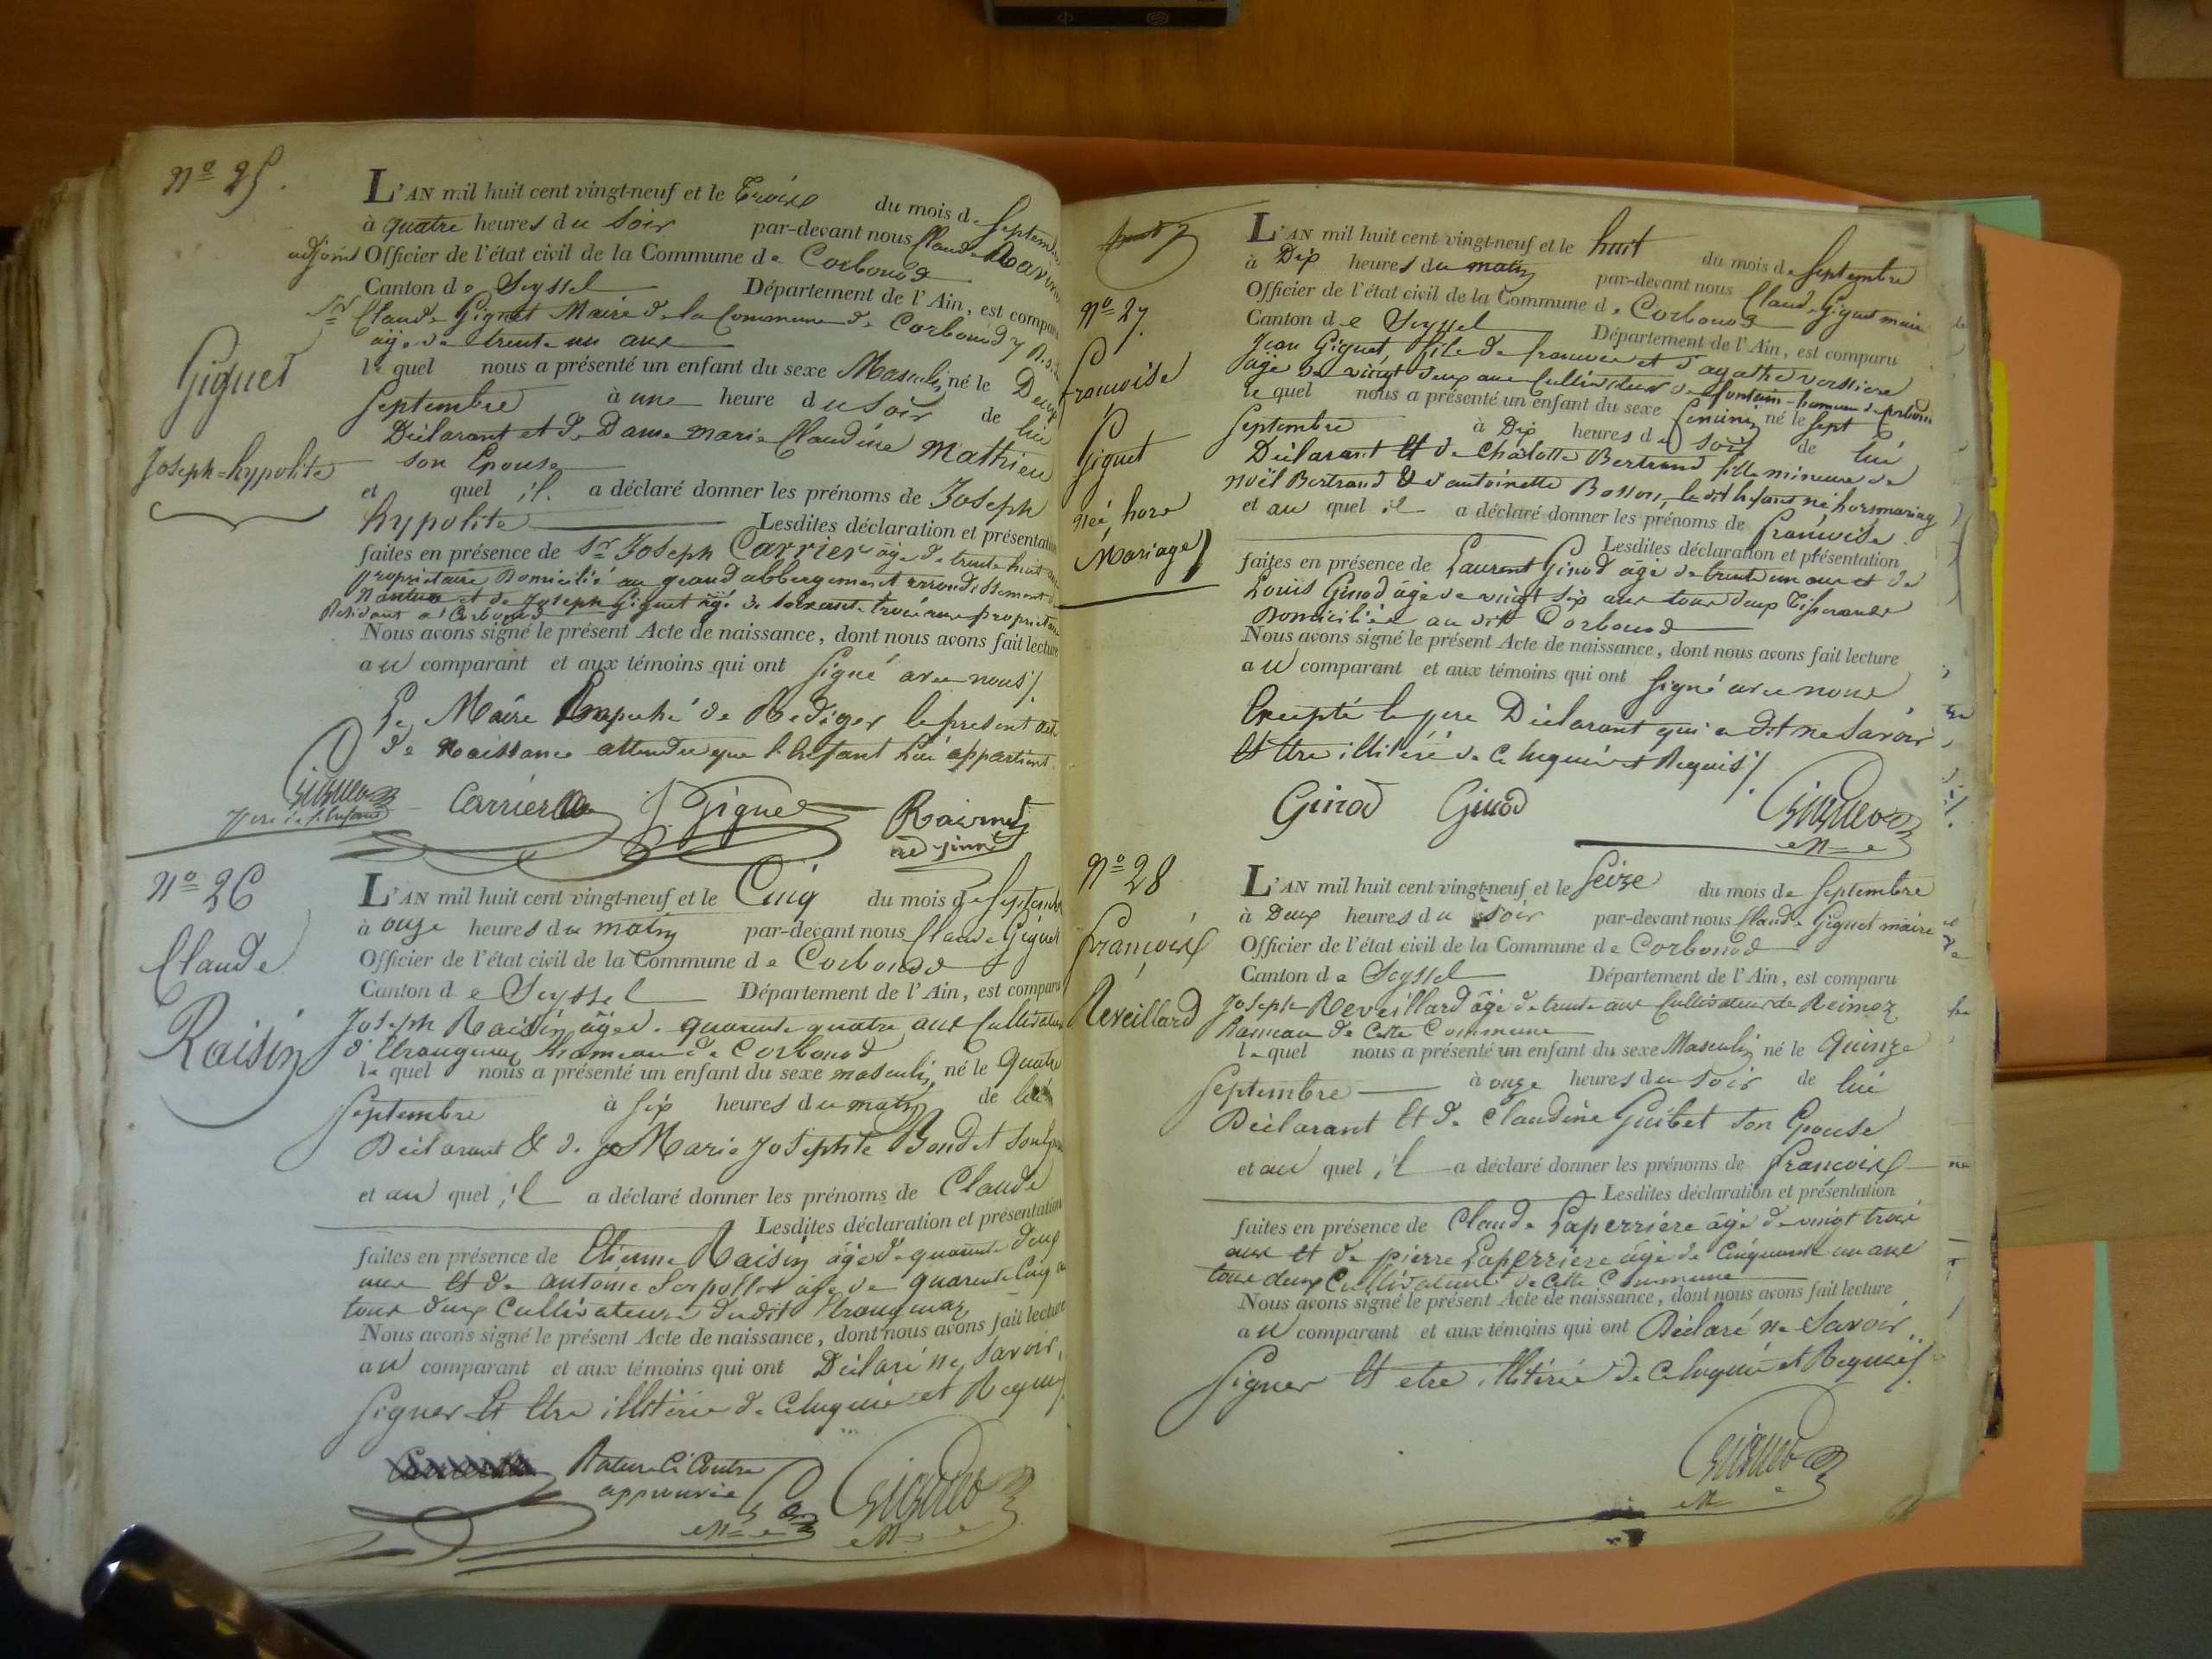 Nº 25.
Giguet
Joseph-hypolite
L'AN mil huit cent vingt-neuf et le trois du mois de Septembre
à quatre heures du Soir par-devant nous Claude
adjoint Officier de l'état civil de la Commune de Corbonod
Canton de Seyssel Département de l'Ain, est comparu
Sr Claude Giguet Maire de la Commune de Corbonod y
âgé de trente un ans
lequel nous a présenté un enfant du sexe Masculin né le Deux
Septembre à une heure du Soir de lui
Déclarant et de Dame marie Claudine Mathieu
son Epouse
et quel il a déclaré donner les prénoms de Joseph
hypolite Lesdites déclaration et présentation
faites en présence de Sr Joseph Carrier âgé de trente huit ans
propriétaire Domicilié au grand abbergement arrondissement de
Nantua et de Joseph Giguet âgé de soixante trois ans propriétaire
Résidant à Corbonod
Nous avons signé le présent Acte de naissance, dont nous avons fait lecture
au comparant et aux témoins qui ont Signé avec nous /.
Le Maire Empeché de Rediger le present acte
de Naissance attendu que l'Enfant lui appartient.
Giguet Carrier J Giguet
pere de l'enfant adjoint
Nº 26
Claude
Raisin
L'AN mil huit cent vingt-neuf et le Cinq du mois de Septembre
à onze heures du matin par-devant nous Claude Giguet
Officier de l'état civil de la Commune de Corbonod
Canton de Seyssel Département de l'Ain, est comparu
Joseph Raisin âgé de quarante quatre ans Cultivateur
d'Etranginaz hameau de Corbonod
lequel nous a présenté un enfant du sexe masculin, né le Quatre
Septembre à Six heures du matin de lui
Déclarant & de Marie Josephte Bondet son Epouse
et au quel il a déclaré donner les prénoms de Claude
Lesdites déclaration et présentation
faites en présence de Etienne Raisin âgé de quarante deux
ans et de antoine Serpollet âgé de quarante Cinq ans
tous deux Cultivateurs dudit Etranginaz
Nous avons signé le présent Acte de naissance, dont nous avons fait lecture
au comparant et aux témoins qui ont Déclaré ne Savoir
Signer et Etre illitéré de Ce Enquis et Requis /.
Rature Ci Contre
approuvée
Giguet
Nº 27
francoise
Giguet
née hors
Mariage
L'AN mil huit cent vingt-neuf et le huit du mois de Septembre
à Dix heures du matin par-devant nous Claude Giguet maire
Officier de l'état civil de la Commune de Corbonod
Canton de Seyssel Département de l'Ain, est comparu
Jean Giguet, fils de francois et d'agathe
âgé de vingt deux ans Cultivateur de hameau de Corbonod
lequel nous a présenté un enfant du sexe feminin né le Sept
Septembre à Dix heures du Soir de lui
Déclarant Et de Charlotte Bertrand fille mineure de
Noël Bertrand & d'antoinette Bosson, le dit Enfant né hors mariage
et au quel il a déclaré donner les prénoms de francoise
Lesdites déclaration et présentation
faites en présence de Laurent Ginod âgé de trente un ans et de
Louis Ginod âgé de vingt Six ans tous deux Tisserands
Domiciliés au dit Corbonod
Nous avons signé le présent Acte de naissance, dont nous avons fait lecture
au comparant et aux témoins qui ont Signé avec nous
Excepté le pere Déclarant qui a dit ne Savoir
Et Etre illitéré de Ce Enquis et Requis /.
Ginod Ginod Giguet
Nº 28
francois
Reveillard
L'AN mil huit cent vingt-neuf et le Seize du mois de Septembre
à Deux heures du soir par-devant nous Claude Giguet maire
Officier de l'état civil de la Commune de Corbonod
Canton de Seyssel Département de l'Ain, est comparu
Joseph Reveillard âgé de trente ans Cultivateur de Reimoz
hameau de Cette Commune
lequel nous a présenté un enfant du sexe Masculin né le Quinze
Septembre à onze heures du Soir de lui
Déclarant Et de Claudine Guibet son Epouse
et au quel il a déclaré donner les prénoms de francois
Lesdites déclaration et présentation
faites en présence de Claude Laperriere âgé de vingt trois
ans et de pierre Laperriere âgé de Cinquante un ans
tous deux Cultivateurs de Cette Commune
Nous avons signé le présent Acte de naissance, dont nous avons fait lecture
au comparant et aux témoins qui ont Déclaré ne Savoir
Signer Et etre illitéré de Ce Enquis et Requis /.
Giguet